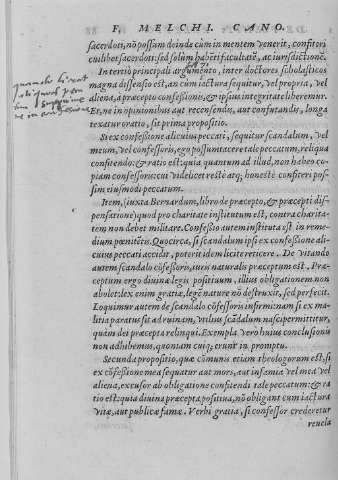 F. MELCHI. CANO.
sacerdoti, nõ possam deinde cùm in mentem venerit, confiteri
cuilibet sacerdoti: sed solùm habẽti facultatẽ, ac iurisdictionẽ.
In tertio principali argumẽto, inter doctores scholasticos
magna dissensio est, an cum iactura sequitur, vel propria, vel
aliena, à præcepto confessionis, & ipsius integritate liberemur.
Et, ne in opinionibus aut recensendis, aut confutandis, longa
texatur oratio, sit prima propositio.
Si ex confessione alicuius peccati, sequitur scandalum, vel
meum, vel confessoris, ego possum tacere tale peccatum, reliqua
confitendo: & ratio est: quia quantum ad illud, non habeo co
piam confessoris: cui videlicet rectè atq; honestè confiteri pos
sim eiusmodi peccatum.
Item, (iuxta Bernardum, libro de præcepto, & præcepti di
spensatione) quod pro charitate institutum est, contra charita
tem non debet militare. Confessio autem instituta est in reme
dium pœnitẽtis. Quocirca, si scandalum ipsi ex confessione ali
cuius peccati accidit, poterit idem licitè reticere. De vitando
autem scandalo cõfessoris, iuris naturalis præceptum est. Præ
ceptum ergo diuinæ legis positiuum, illius obligationem non
abolet: lex enim gratiæ, legẽ naturæ nõ destruxit, sed perfecit.
Loquimur autem de scandalo cõfessoris infirmi: nam si ex ma
litia paratus sit ad ruinam, vtilius scãdalum nasci permittitur,
quàm dei præcepta relinqui. Exempla verò huius conclusionis
non adhibemus, quoniam cuiq; erunt in promptu.
Secunda propositio, quæ cõmunis etiam theologorum est, si
ex cõfessione mea sequatur aut mors, aut infamia vel mea vel
aliena, excusor ab obligatione confitendi tale peccatum: & ra
tio est: quia diuina præcepta positiua, nõ obligant cum iactura
vitæ, aut publicæ famæ. Verbi gratia, si confessor crederetur
reuela